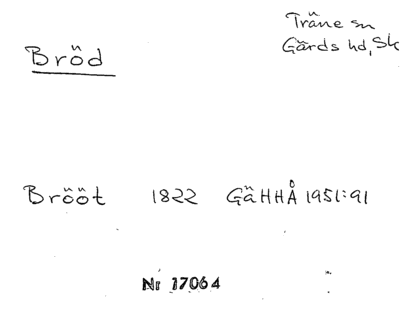 Träne sn
Gärds hd, Sk
Bröd
Brööt 1822 GäHHÅ 1951:91
Nr 17064